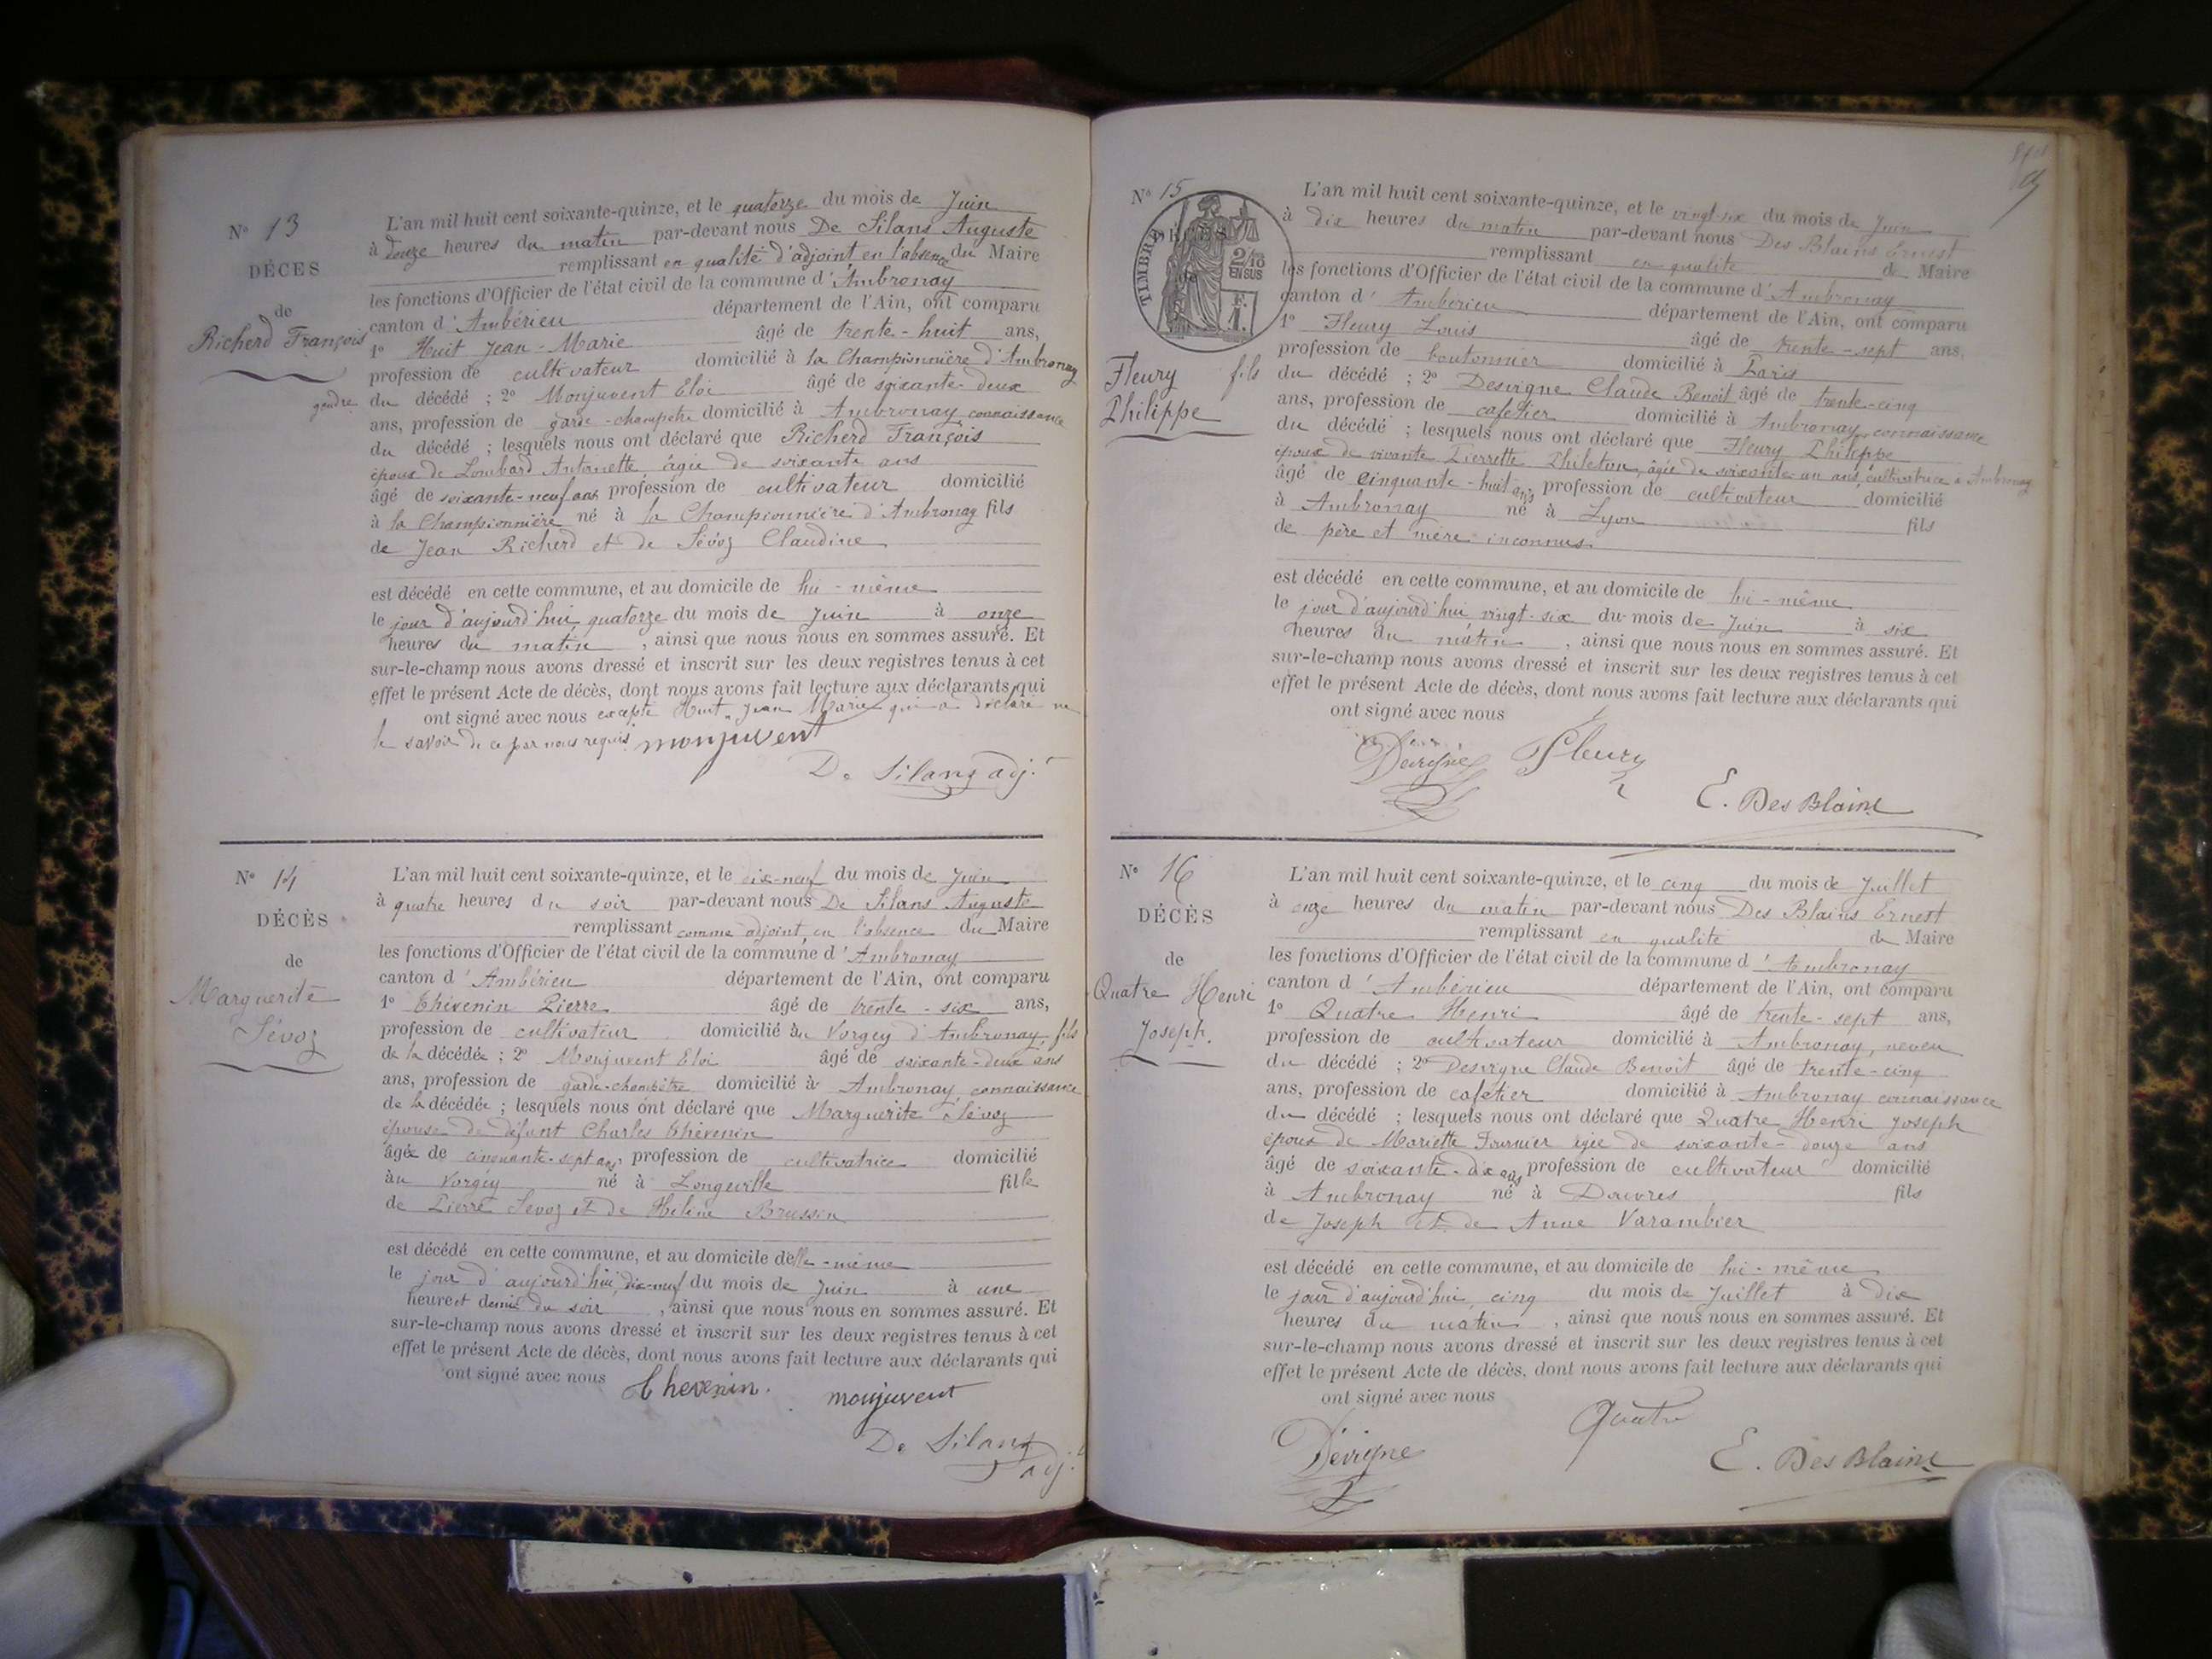 N° 13
DÉCES
de
Richerd François
gendre
L'an mil huit cent soixante-quinze, et le quatorze du mois de Juin
à douze heures du matin par-devant nous De Silans Auguste
remplissant en qualité d'adjoint en l'absence du Maire
les fonctions d'Officier de l'état civil de la commune d'Ambronay
canton d'Ambérieu département de l'Ain, ont comparu
1° Huit Jean-Marie âgé de trente-huit ans,
profession de cultivateur domicilié à la Championnière d'Ambronay
du décédé ; 2° Monjuvent Eloi âgé de soixante-deux
ans, profession de garde-champêtre domicilié à Ambronay, connaissance
du décédé ; lesquels nous ont déclaré que Richerd François
époux de Lombard Antoinette, âgée de soixante ans
âgé de soixante-neuf ans profession de cultivateur domicilié
à la Championnière né à la Championnière d'Ambronay fils
de Jean Richerd et de Sévoz Claudine
est décédé en cette commune, et au domicile de lui-même
le jour d'aujourd'hui quatorze du mois de Juin à onze
heures du matin, ainsi que nous nous en sommes assuré. Et
sur-le-champ nous avons dressé et inscrit sur les deux registres tenus à cet
effet le présent Acte de décès, dont nous avons fait lecture aux déclarants qui
ont signé avec nous excepté Huit Jean Marie qui a déclaré ne
le savoir de ce par nous requis monjuvent
De Silans adj.t
N° 14
DÉCÈS
de
Marguerite
Sévoz
L'an mil huit cent soixante-quinze, et le dix-neuf du mois de Juin
à quatre heures du soir par-devant nous De Silans Auguste
remplissant comme adjoint, en l'absence du Maire
les fonctions d'Officier de l'état civil de la commune d'Ambronay
canton d'Ambérieu département de l'Ain, ont comparu
1° Thévenin Pierre âgé de trente-six ans,
profession de cultivateur domicilié au Vorgey d'Ambronay, fils
de la décédée ; 2° Monjuvent Eloi âgé de soixante-deux ans
ans, profession de garde-champêtre domicilié à Ambronay, connaissance
de la décédée ; lesquels nous ont déclaré que Marguerite Sévoz
épouse de défunt Charles Thévenin
âgée de cinquante-sept ans, profession de cultivatrice domicilié
au Vorgey né à Longeville fille
de Pierre Sevoz et de Helène Brussin
est décédé en cette commune, et au domicile d'elle-même
le jour d'aujourd'hui, dix-neuf du mois de Juin à une
heure et demie du soir, ainsi que nous nous en sommes assuré. Et
sur-le-champ nous avons dressé et inscrit sur les deux registres tenus à cet
effet le présent Acte de décès, dont nous avons fait lecture aux déclarants qui
ont signé avec nous Thevenin. monjuvent
De Silans
adj.t
N° 15
DÉCÈS
TIMBRE
2/10
EN SUS
F.
1.
Fleury
Philippe
fils
L'an mil huit cent soixante-quinze, et le vingt-six du mois de Juin
à dix heures du matin par-devant nous Des Blains Ernest
remplissant en qualité de Maire
les fonctions d'Officier de l'état civil de la commune d'Ambronay
canton d'Ambérieu département de l'Ain, ont comparu
1° Fleury Louis âgé de trente-sept ans,
profession de boutonnier domicilié à Paris
du décédé ; 2° Desvigne Claude Benoit âgé de trente-cinq
ans, profession de cafetier domicilié à Ambronay, connaissance
du décédé ; lesquels nous ont déclaré que Fleury Philippe
époux de vivante Pierrette Phileton, âgée de soixante-un ans, cultivatrice à Ambronay
âgé de cinquante-huit ans, profession de cultivateur domicilié
à Ambronay né à Lyon fils
de père et mère inconnus
est décédé en cette commune, et au domicile de lui-même
le jour d'aujourd'hui vingt-six du mois de Juin à six
heures du matin, ainsi que nous nous en sommes assuré. Et
sur-le-champ nous avons dressé et inscrit sur les deux registres tenus à cet
effet le présent Acte de décès, dont nous avons fait lecture aux déclarants qui
ont signé avec nous
Devigne Fleury
E. Des Blains
N° 16
DÉCÈS
de
Quatre Henri
Joseph.
L'an mil huit cent soixante-quinze, et le cinq du mois de Juillet
à onze heures du matin par-devant nous Des Blains Ernest
remplissant en qualité de Maire
les fonctions d'Officier de l'état civil de la commune d'Ambronay
canton d'Ambérieu département de l'Ain, ont comparu
1° Quatre Henri âgé de trente-sept ans,
profession de cultivateur domicilié à Ambronay, neveu
du décédé ; 2° Desvigne Claude Benoit âgé de trente-cinq
ans, profession de cafetier domicilié à Ambronay connaissance
du décédé ; lesquels nous ont déclaré que Quatre Henri Joseph
époux de Mariette Fournier âgée de soixante-douze ans
âgé de soixante-dix ans profession de cultivateur domicilié
à Ambronay né à Douvres fils
de Joseph et de Anne Varambier
est décédé en cette commune, et au domicile de lui-même
le jour d'aujourd'hui, cinq du mois de Juillet à dix
heures du matin, ainsi que nous nous en sommes assuré. Et
sur-le-champ nous avons dressé et inscrit sur les deux registres tenus à cet
effet le présent Acte de décès, dont nous avons fait lecture aux déclarants qui
ont signé avec nous
Quatre
Devigne
E. Des Blains